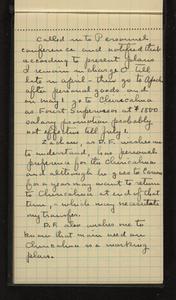 Called in to Personnel
conference and notified that
according to present plans
I remain in charge D till
late in April - then go to Apache
after personal goods and
on may 1 go to Chiricahua
as Forest Supervisor at $1800
salary promotion probably
not effective till July 1.
I am, as D.F. wishes me
to understand, personal
preference for the Chiricahua
and although he goes to
for a year may want to return
to Chiricahua at end of that
time, - which may necessitate
my transfer.
D.F. also wishes me to
know that main need on
Chiricahua is a working
plan.